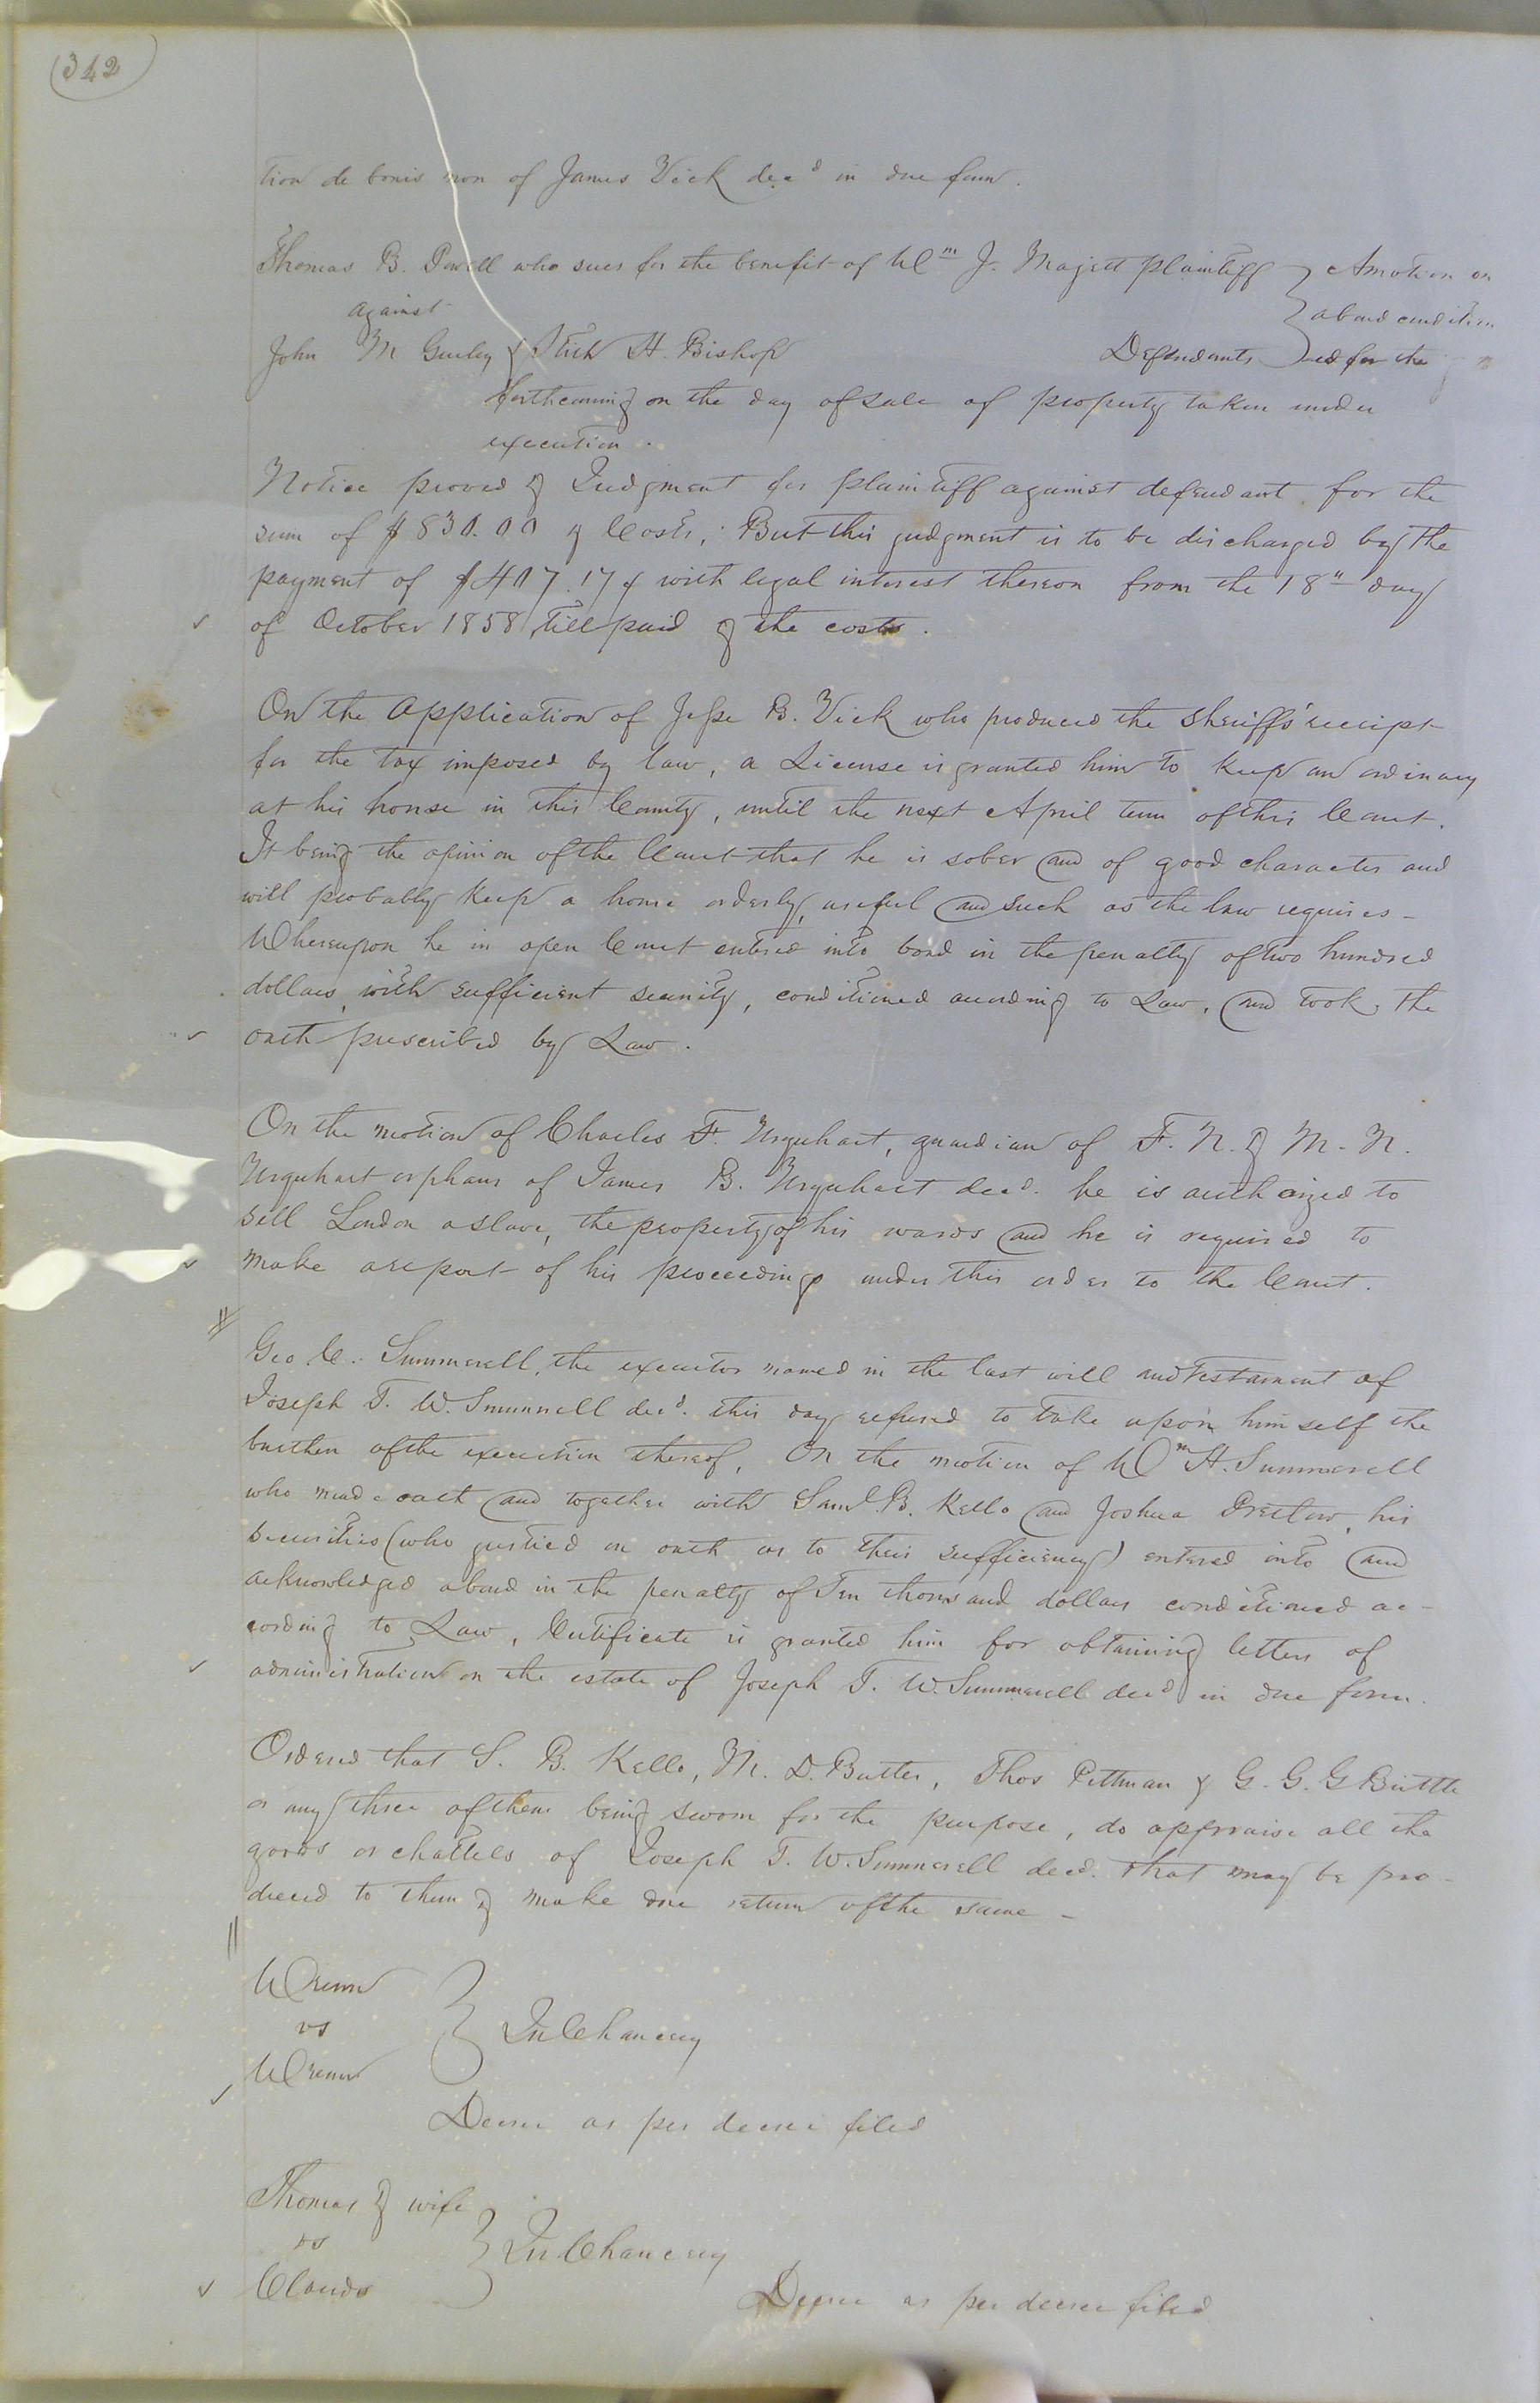 (342)
tion de bonis non of James Vick decd in due form.
Thomas B. Powell who sues for the benefit of Wm J. Majett plaintiff } A motion on
against } a bond condition
John M Gurley & H. Bishop Defendants } ed for the
forthcoming on the day of sale of property taken under
execution.
Notice proved & Judgment for plaintiff against defendant for the
sum of $830.00 & Costs, But this judgment is to be discharged by the
payment of $407.17¢ with legal interest thereon from the 18" day
of October 1858, till paid & the costs.
On the application of Jesse B. Vick who produced the Sheriffs' receipt
for the tax imposed by law, a License is granted him to keep an ordinary
at his house in this County, until the next April term of this Court.
It being the opinion of the Court that he is sober and of good character and
will probably keep a house orderly, useful and such as the law requires -
Whereupon he in open Court entered into bond in the penalty of two hundred
dollars, with sufficient security, conditioned according to Law, and took the
oath prescribed by Law.
On the motion of Charles F. Urquhart, guardian of F. N. & M. N.
Urquhart orphans of James B. Urquhart decd. he is authorized to
sell London a slave, the property of his wards and he is required to
make a report of his proceedings under this order to the Court.
Geo C. Summerell, the executor named in the last will and testament of
Joseph T. W. Summerell decd. this day refused to take upon himself the
burthen of the execution thereof, On the motion of Wm H. Summerell
who made oath and together with Saml B. Kello and Joshua Pretlow, his
securities (who justied on oath as to their sufficiency) entered into and
acknowledged a bond in the penalty of Ten thousand dollars conditioned ac-
cording to Law, Certificate is granted him for obtaining letters of
administration on the estate of Joseph T. W. Summerell decd in due form.
Ordered that S. B. Kello, M. D. Butts, Thos Pittman & G. G. G Brittle
or any three of them being sworn for the purpose, do appraise all the
goods or chattels of Joseph T. W. Summerell decd. that may be pro-
duced to them & make due return of the same -
Wrenn
vs } In Chancery
Wrenn
Decree as per decree filed
Thomas & wife
vs } In Chancery
Claude
Decree as per decree filed